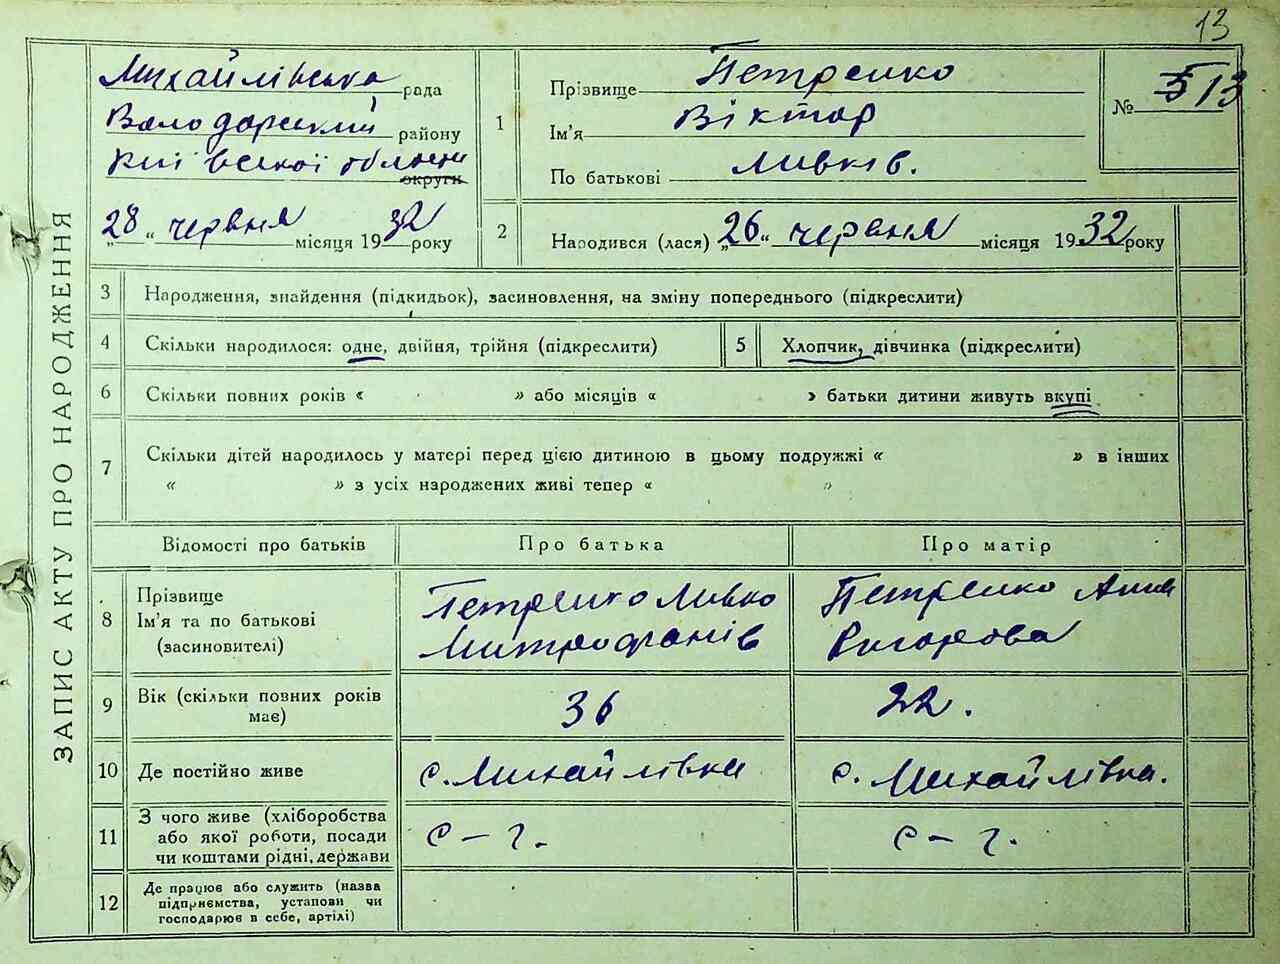 13
ЗАПИС АКТУ ПРО НАРОДЖЕННЯ
Михайлівська рада
Володарський району
Київської області округи
„28“ червня місяця 1932 року
1
Прізвище Петренко
Ім'я Віктор
По батькові Ливків.
№ 13
2
Народився (лася) „26“ червня місяця 1932 року
3 Народження, знайдення (підкидьок), засиновлення, на зміну попереднього (підкреслити)
4 Скільки народилося: одне, двійня, трійня (підкреслити)
5 Хлопчик, дівчинка (підкреслити)
6 Скільки повних років « » або місяців « » батьки дитини живуть вкупі
7 Скільки дітей народилось у матері перед цією дитиною в цьому подружжі « » в інших
« » з усіх народжених живі тепер « »
Відомості про батьків Про батька Про матір
8 Прізвище
Ім'я та по батькові
(засиновителі)
Петренко Ливко
Митрофанів
Петренко
Вигорова
9 Вік (скільки повних років
має)
36
22.
10 Де постійно живе с. Михайлівка с. Михайлівка.
11 З чого живе (хліборобства
або якої роботи, посади
чи коштами рідні, держави
с – г. с – г.
12 Де працює або служить (назва
підприємства, установи чи
господарює в себе, артілі)